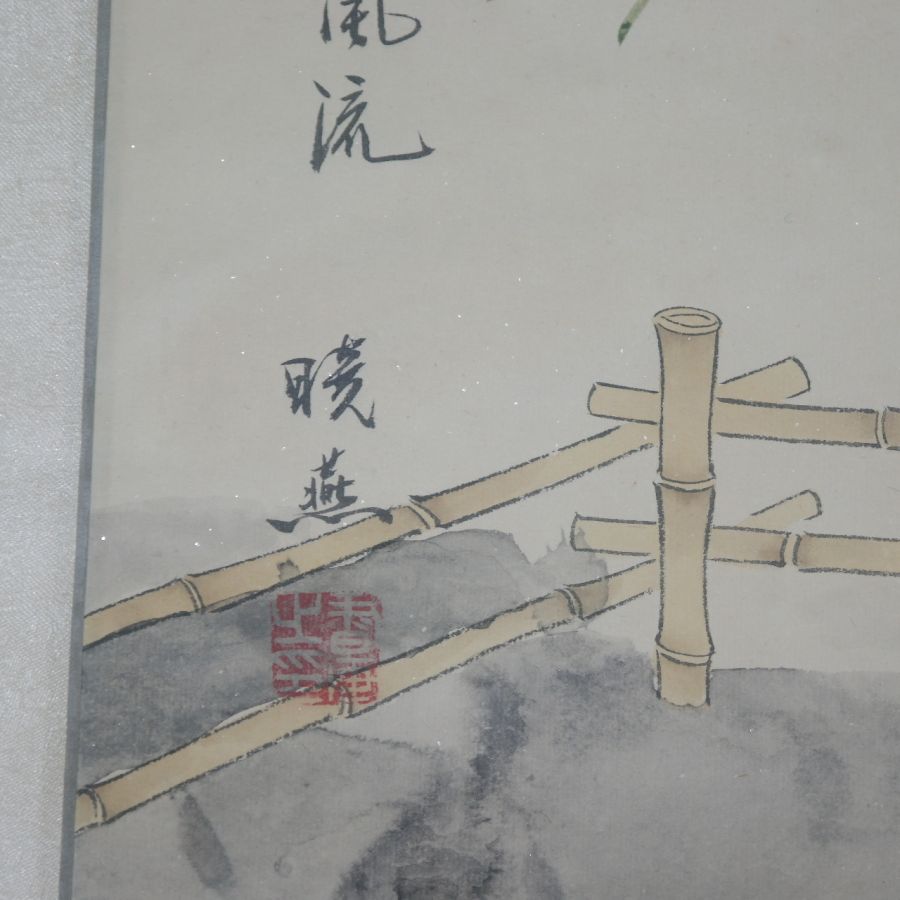 風流
曉燕